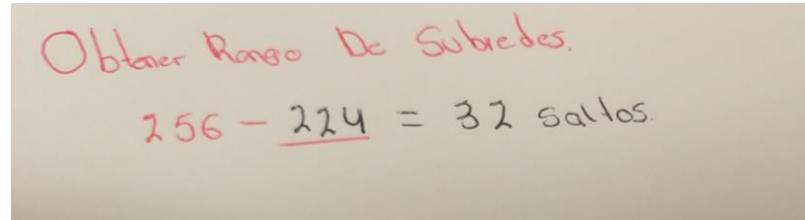 Obtener Rango De Subredes.
256 - 224 = 32 saltos.